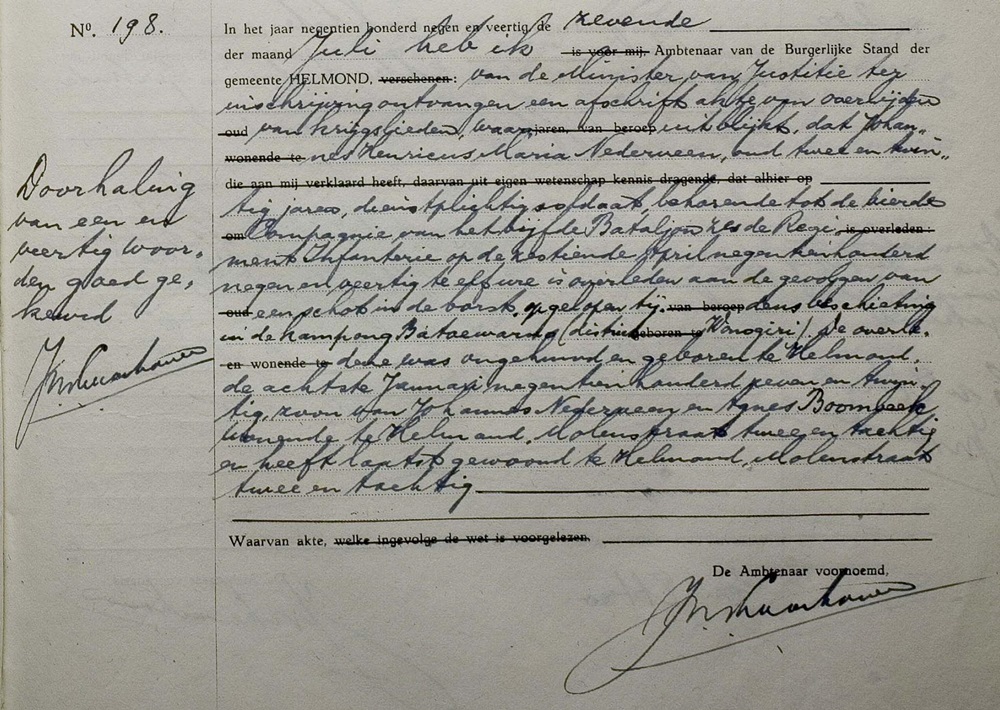 No. 198.
In het jaar negentien honderd negen en veertig de zevende
der maand Juli heb ik is voor mij, Ambtenaar van de Burgerlijke Stand der
gemeente HELMOND, verschenen: van de Minister van Justitie ter
inschrijving ontvangen een afschrift akte van overlijden
oud van krijgslieden, waar jaren, van beroep uit blijkt, dat Johan„
wonende te nes Henricus Maria Nederveen, oud twee en twin„
die aan mij verklaard heeft, daarvan uit eigen wetenschap kennis dragende, dat alhier op
tig jaren, dienstplichtig soldaat, behorende tot de vierde
om Compagnie van het vijfde Bataljon zesde Regi- is overleden:
ment Infanterie op de zestiende April negentienhonderd
negen en veertig te elf ure is overleden aan de gevolgen van
oud een schot in de borst, opgelopen tij- van beroep dens beschieting
in de kampong Batoewarno (district geboren te Wonogiri). De overle-
en wonende te dene was ongehuwd en geboren te Helmond,
de achtste Januari negentienhonderd zeven en twin„
tig, zoon van Johannes Nederveen en Agnes Boombeek,
wonende te Helmond, Molenstraat twee en tachtig
en heeft laatst gewoond te Helmond, Molenstraat
twee en tachtig
Waarvan akte, welke ingevolge de wet is voorgelezen.
De Ambtenaar voornoemd,
Doorhaling
van een en
veertig woor-
den goed ge-
keurd